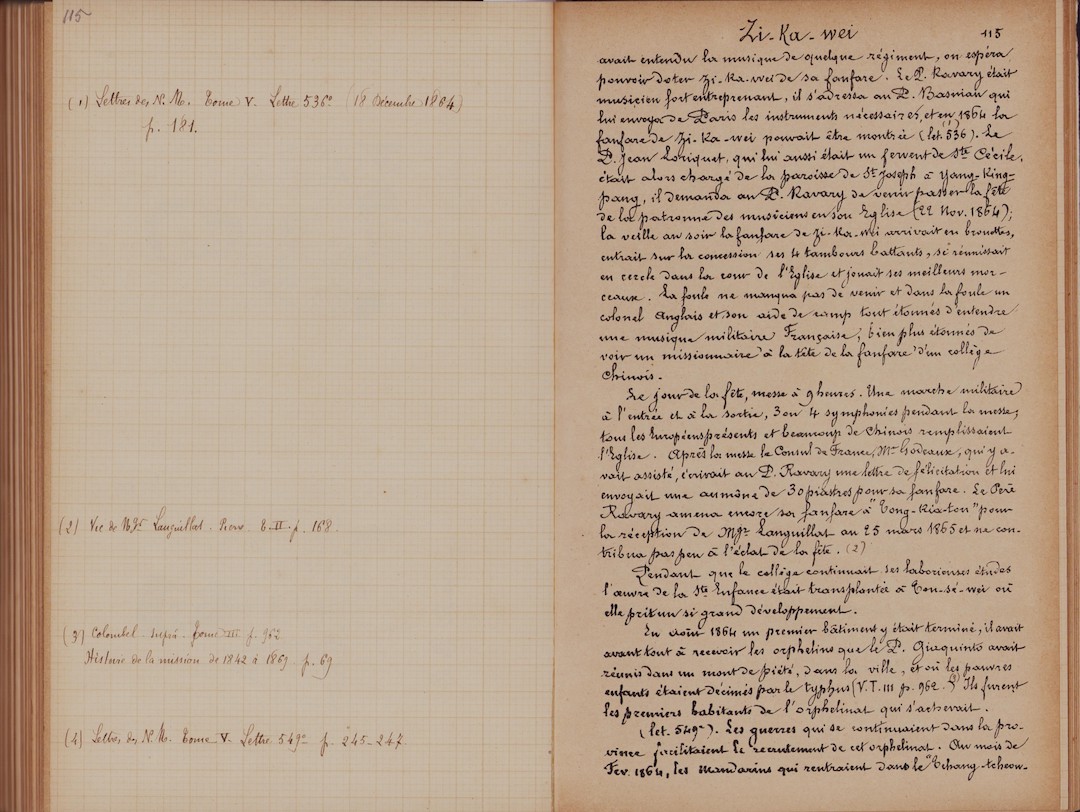 115
(1) Lettres des N. M. Tome V. Lettre 536e (18 Décembre 1864)
p. 181.
(2) Vie de Mgr Languillat. Pierre. T. II. p. 168.
(3) Colombel supra Tome III p. 962
Histoire de la mission de 1842 à 1869 p. 69
(4) Lettres des N. M. Tome V. Lettre 549e p. 245-247.
Zi-Ka-wei 115
avait entendu la musique de quelque régiment, on espéra
pouvoir doter Zi-Ka-wei de sa fanfare. Le P. Ravary était
musicien fort entreprenant, il s'adressa au P. Basuiau qui
lui envoya de Paris les instruments nécessaires, et en 1864 la
fanfare de Zi-Ka-wei pouvait être montrée (let. 536). Le
P. Jean Loriquet, qui lui aussi était un fervent de Ste Cécile,
était alors chargé de la paroisse de St Joseph à Yang-King-
pang, il demanda au P. Ravary de venir passer la fête
de la patronne des musiciens en son Eglise (22 Nov. 1864);
la veille au soir la fanfare de Zi-Ka-wei arrivait en brouettes,
entrait sur la concession ses 4 tambours battants, se réunissait
en cercle dans la cour de l'Eglise et jouait ses meilleurs mor-
ceaux. La foule ne manqua pas de venir et dans la foule un
colonel Anglais et son aide de camp tout étonnés d'entendre
une musique militaire Française, bien plus étonnés de
voir un missionnaire à la tête de la fanfare d'un collège
Chinois.
Le jour de la fête, messe à 9 heures. Une marche militaire
à l'entrée et à la sortie, 3 ou 4 symphonies pendant la messe,
tous les Européens présents et beaucoup de Chinois remplissaient
l'Eglise. Après la messe le Consul de France, Mr Godeaux, qui y a-
vait assisté, écrivait au P. Ravary une lettre de félicitation et lui
envoyait une aumône de 30 piastres pour sa fanfare. Le Père
Ravary amena encore sa fanfare à "Tong-Kia-tou" pour
la réception de Mgr Languillat au 25 mars 1865 et ne con-
tribua pas peu à l'éclat de la fête. (2)
Pendant que le collège continuait ses laborieuses études
l'œuvre de la Ste Enfance était transplantée à Tou-sè-wei où
elle prit un si grand développement.
En Août 1864 un premier bâtiment y était terminé; il avait
avant tout à recevoir les orphelins que le P. Giaquinto avait
réunis dans un mont de piété, dans la ville, et où les pauvres
enfants étaient décimés par le typhus (V. T. III p. 962.) Ils furent
les premiers habitants de l'orphelinat qui s'achevait.
(let. 549e). Les guerres qui se continuaient dans la pro-
vince facilitaient le recrutement de cet orphelinat. Au mois de
Fev. 1864, les Mandarins qui rentraient dans le "Tchang-tcheou-